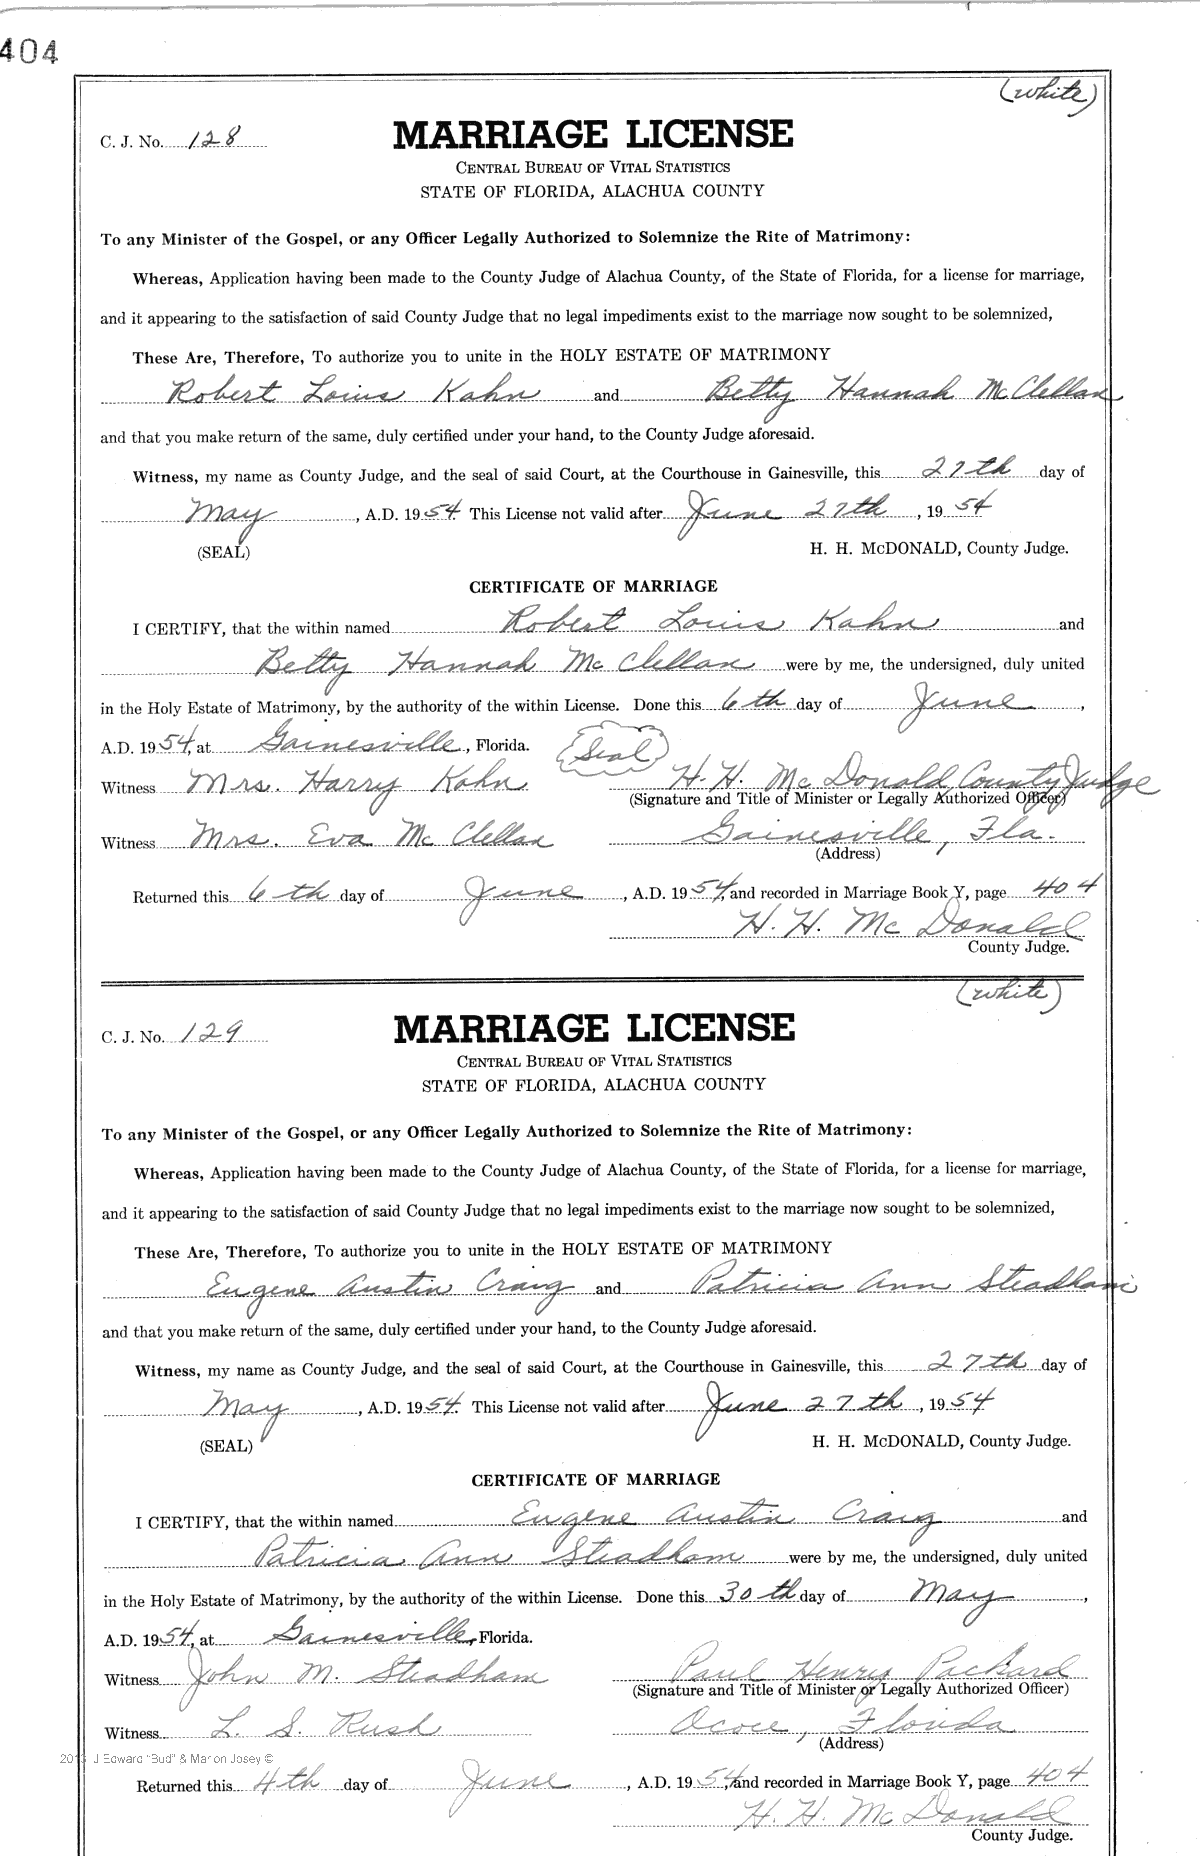 404
(white)
C. J. No. 128
MARRIAGE LICENSE
CENTRAL BUREAU OF VITAL STATISTICS
STATE OF FLORIDA, ALACHUA COUNTY
To any Minister of the Gospel, or any Officer Legally Authorized to Solemnize the Rite of Matrimony:
Whereas, Application having been made to the County Judge of Alachua County, of the State of Florida, for a license for marriage,
and it appearing to the satisfaction of said County Judge that no legal impediments exist to the marriage now sought to be solemnized,
These Are, Therefore, To authorize you to unite in the HOLY ESTATE OF MATRIMONY
Robert Louis Kahn and Betty Hannah McClellan
and that you make return of the same, duly certified under your hand, to the County Judge aforesaid.
Witness, my name as County Judge, and the seal of said Court, at the Courthouse in Gainesville, this 27th day of
May, A.D. 1954. This License not valid after June 27th, 1954
(SEAL) H. H. McDONALD, County Judge.
CERTIFICATE OF MARRIAGE
I CERTIFY, that the within named Robert Louis Kahn and
Betty Hannah McClellan were by me, the undersigned, duly united
in the Holy Estate of Matrimony, by the authority of the within License. Done this 6th day of June,
A.D. 1954, at Gainesville, Florida. Seal
Witness Mrs. Harry Kahn H. H. McDonald, County Judge
(Signature and Title of Minister or Legally Authorized Officer)
Witness Mrs. Eva McClellan Gainesville, Fla.
(Address)
Returned this 6th day of June, A.D. 1954, and recorded in Marriage Book Y, page 404
H. H. McDonald
County Judge.
(white)
C. J. No. 129
MARRIAGE LICENSE
CENTRAL BUREAU OF VITAL STATISTICS
STATE OF FLORIDA, ALACHUA COUNTY
To any Minister of the Gospel, or any Officer Legally Authorized to Solemnize the Rite of Matrimony:
Whereas, Application having been made to the County Judge of Alachua County, of the State of Florida, for a license for marriage,
and it appearing to the satisfaction of said County Judge that no legal impediments exist to the marriage now sought to be solemnized,
These Are, Therefore, To authorize you to unite in the HOLY ESTATE OF MATRIMONY
Eugene Austin Craig and Patricia Ann Steadham
and that you make return of the same, duly certified under your hand, to the County Judge aforesaid.
Witness, my name as County Judge, and the seal of said Court, at the Courthouse in Gainesville, this 27th day of
May, A.D. 1954. This License not valid after June 27th, 1954
(SEAL) H. H. McDONALD, County Judge.
CERTIFICATE OF MARRIAGE
I CERTIFY, that the within named Eugene Austin Craig and
Patricia Ann Steadham were by me, the undersigned, duly united
in the Holy Estate of Matrimony, by the authority of the within License. Done this 30th day of May,
A.D. 1954, at Gainesville, Florida.
Witness John M. Steadham Paul Henry Packard
(Signature and Title of Minister or Legally Authorized Officer)
Witness L. S. Rush Ocoee, Florida
(Address)
J Edward "Bud" & Marion Josey ©
Returned this 4th day of June, A.D. 1954, and recorded in Marriage Book Y, page 404
H. H. McDonald
County Judge.